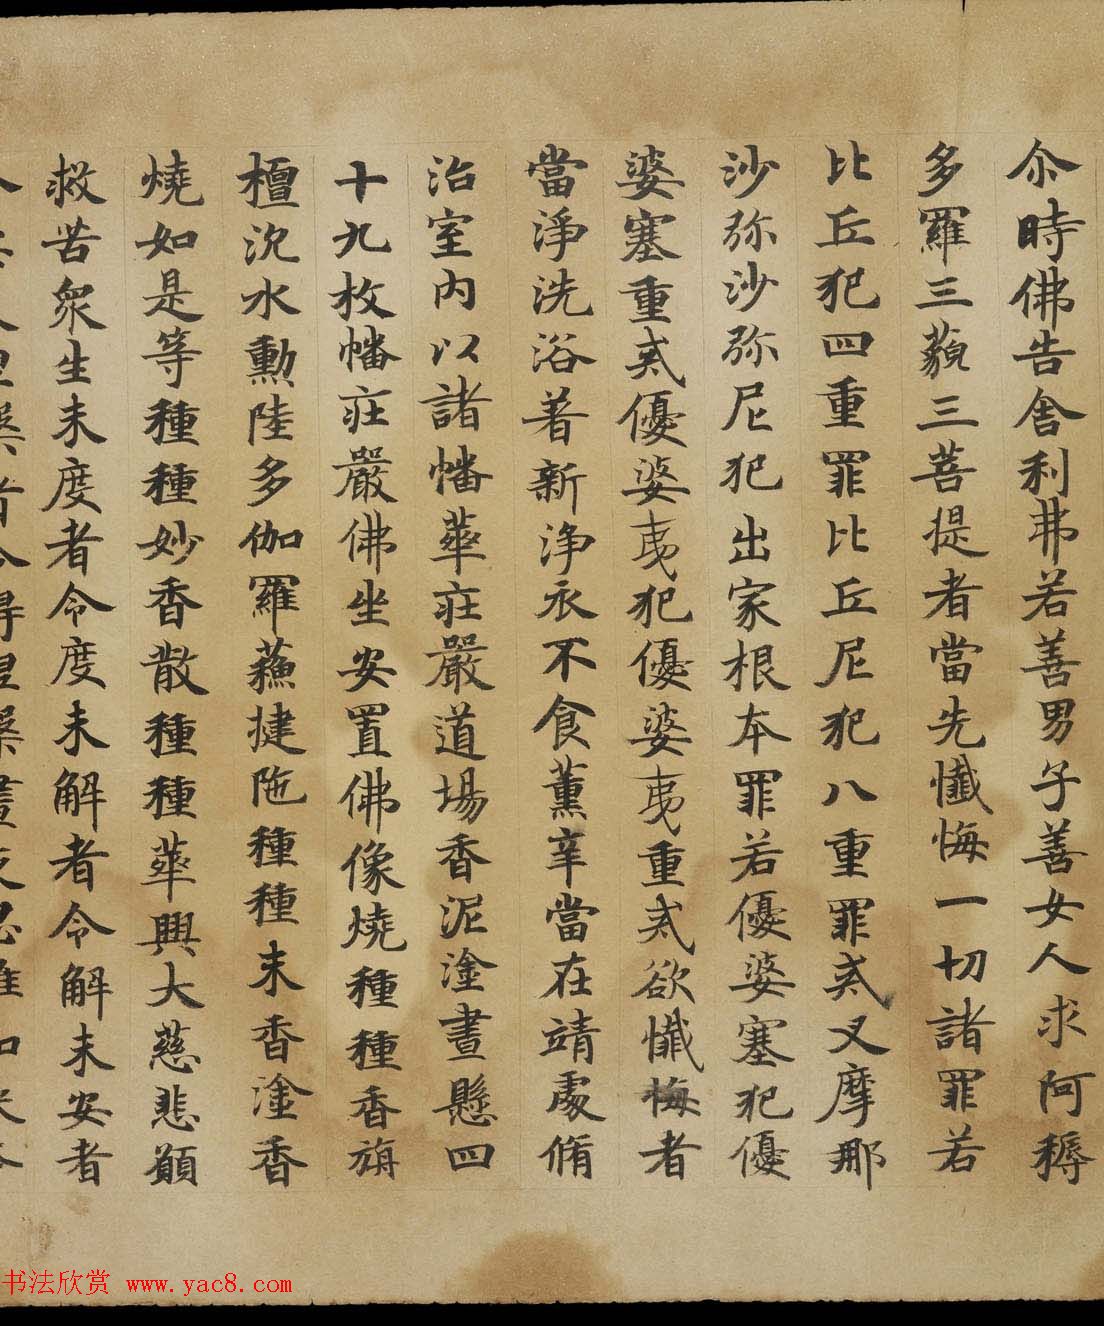 尒時佛告舍利弗若善男子善女人求阿耨
多羅三藐三菩提者當先懺悔一切諸罪若
比丘犯四重罪比丘尼犯八重罪式叉摩那
沙弥沙弥尼犯出家根本罪若優婆塞犯優
婆塞重戒優婆夷犯優婆夷重戒欲懺悔者
當淨洗浴著新淨衣不食薰辛當在靖處脩
治室內以諸幡華莊嚴道場香泥塗畫懸四
十九枚幡莊嚴佛坐安置佛像燒種種香旃
檀沉水勳陸多伽羅蘓揵陁種種末香塗香
燒如是等種種妙香散種種華興大慈悲願
救苦眾生未度者令度未解者令解未安者
书法欣赏 www.yac8.com